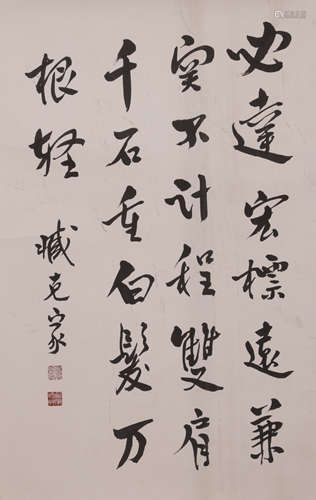 必達宏標遠兼
不計程雙肩
千石重白髮万
根軽
臧克家